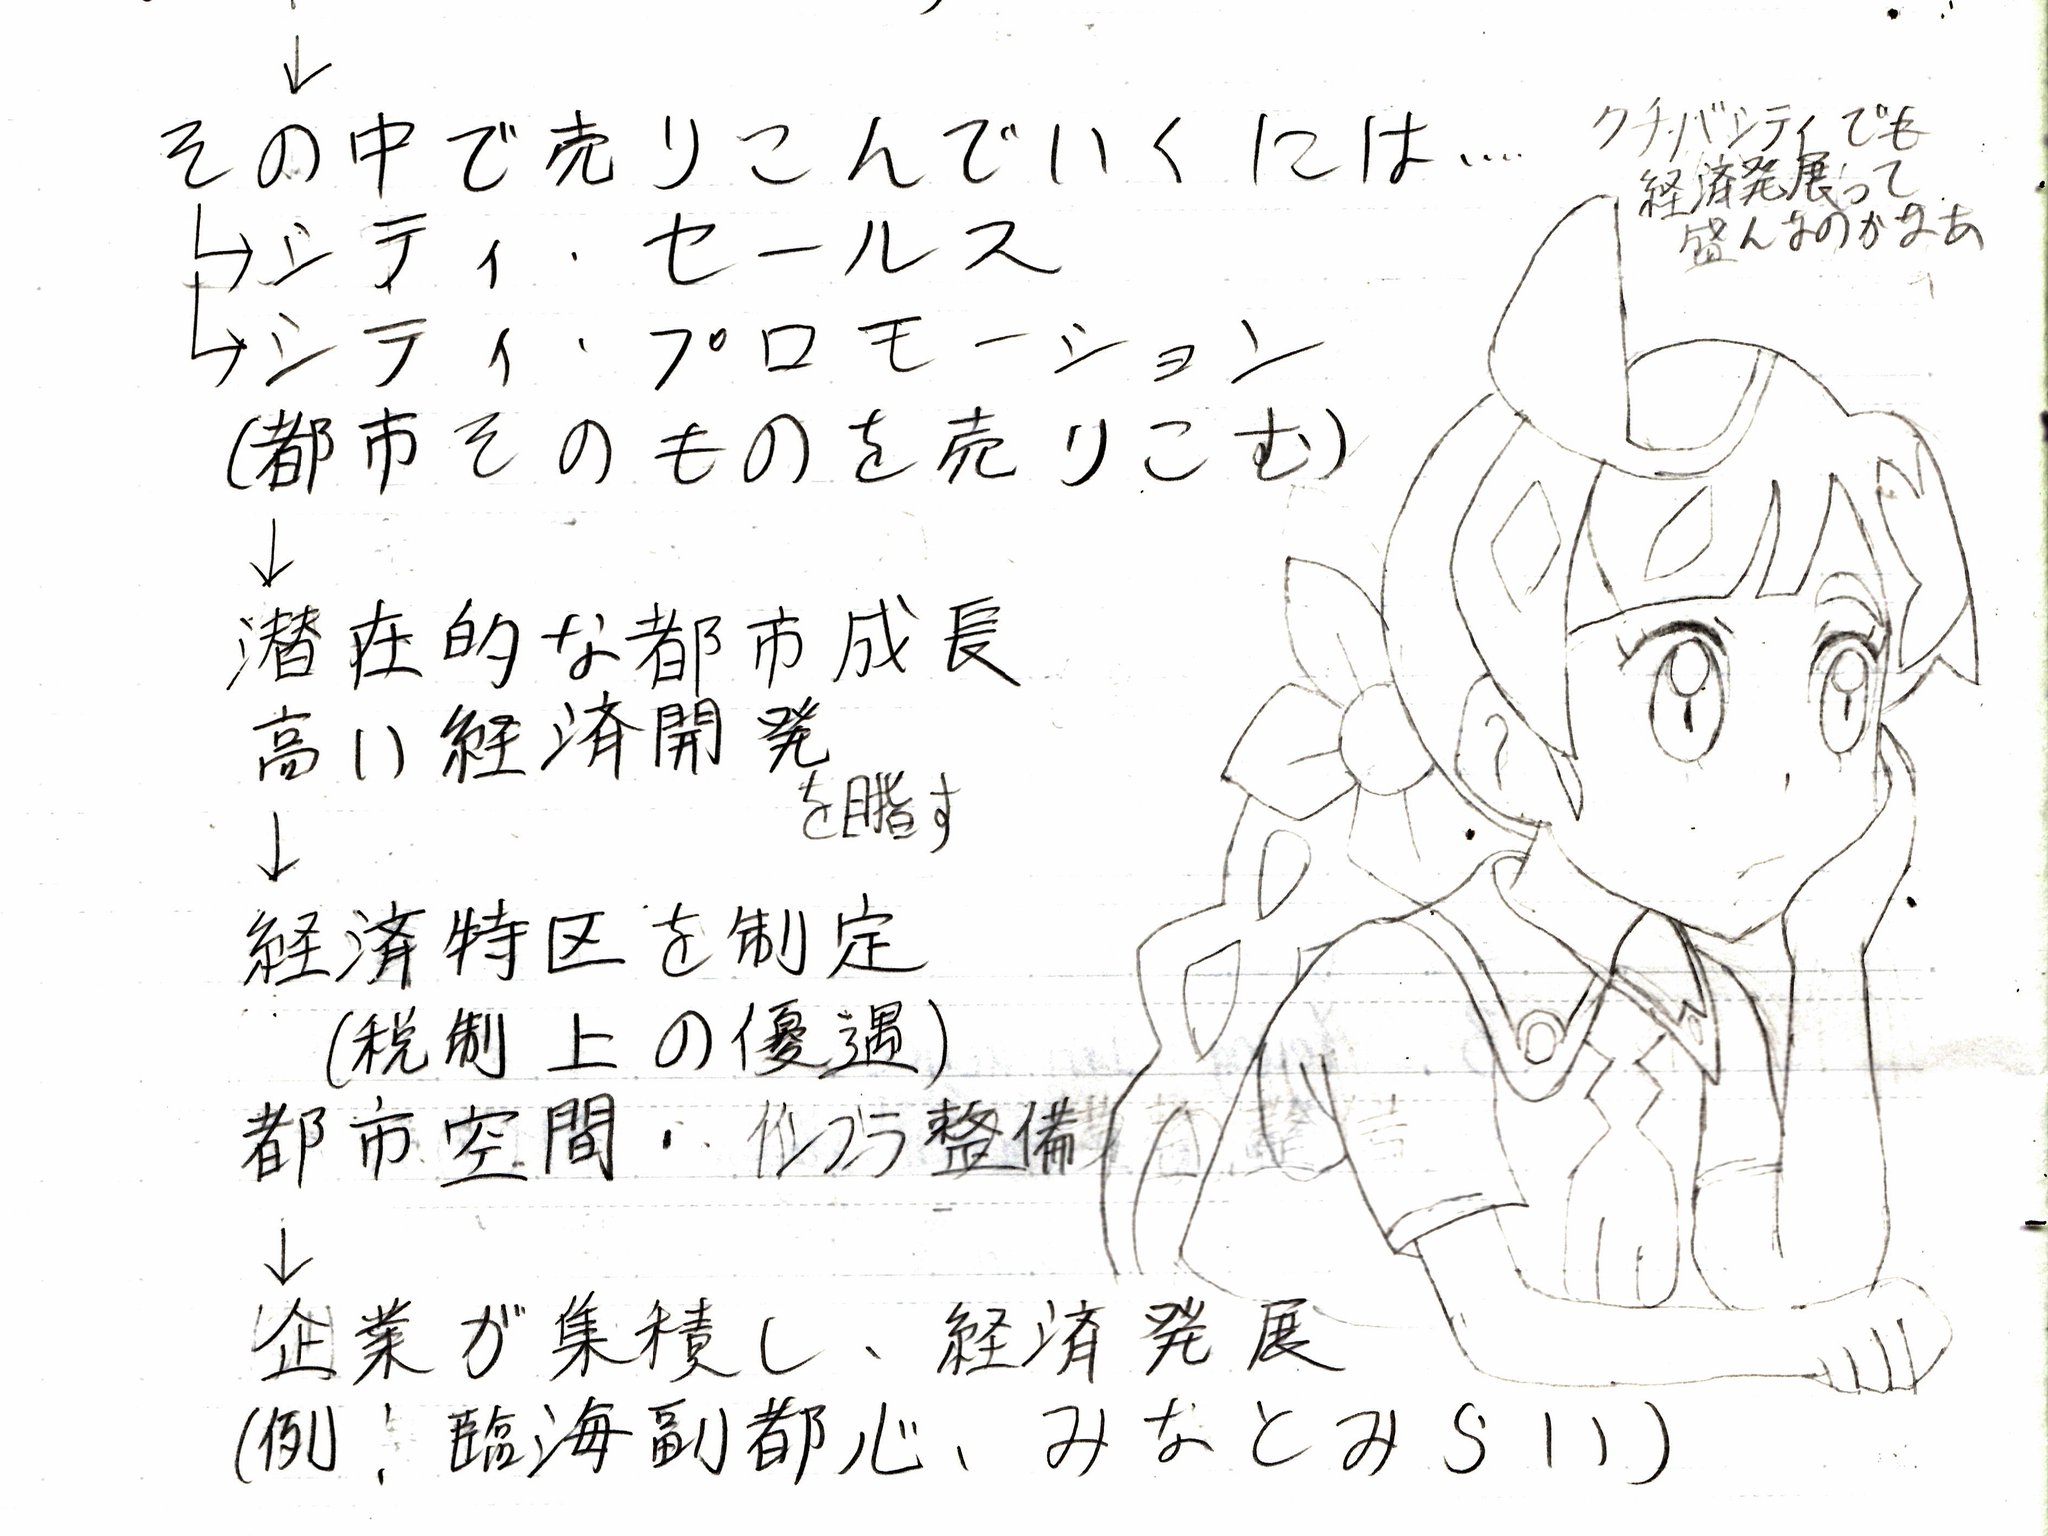 ↓
その中で売りこんでいくには....
↳シティ・セールス
↳シティ・プロモーション
(都市そのものを売りこむ)
↓
潜在的な都市成長
高い経済開発
を目指す
↓
経済特区を制定
(税制上の優遇)
都市空間・インフラ整備
↓
企業が集積し、経済発展
(例:臨海副都心、みなとみらい)
クチバシティでも
経済発展って
盛んなのかなあ